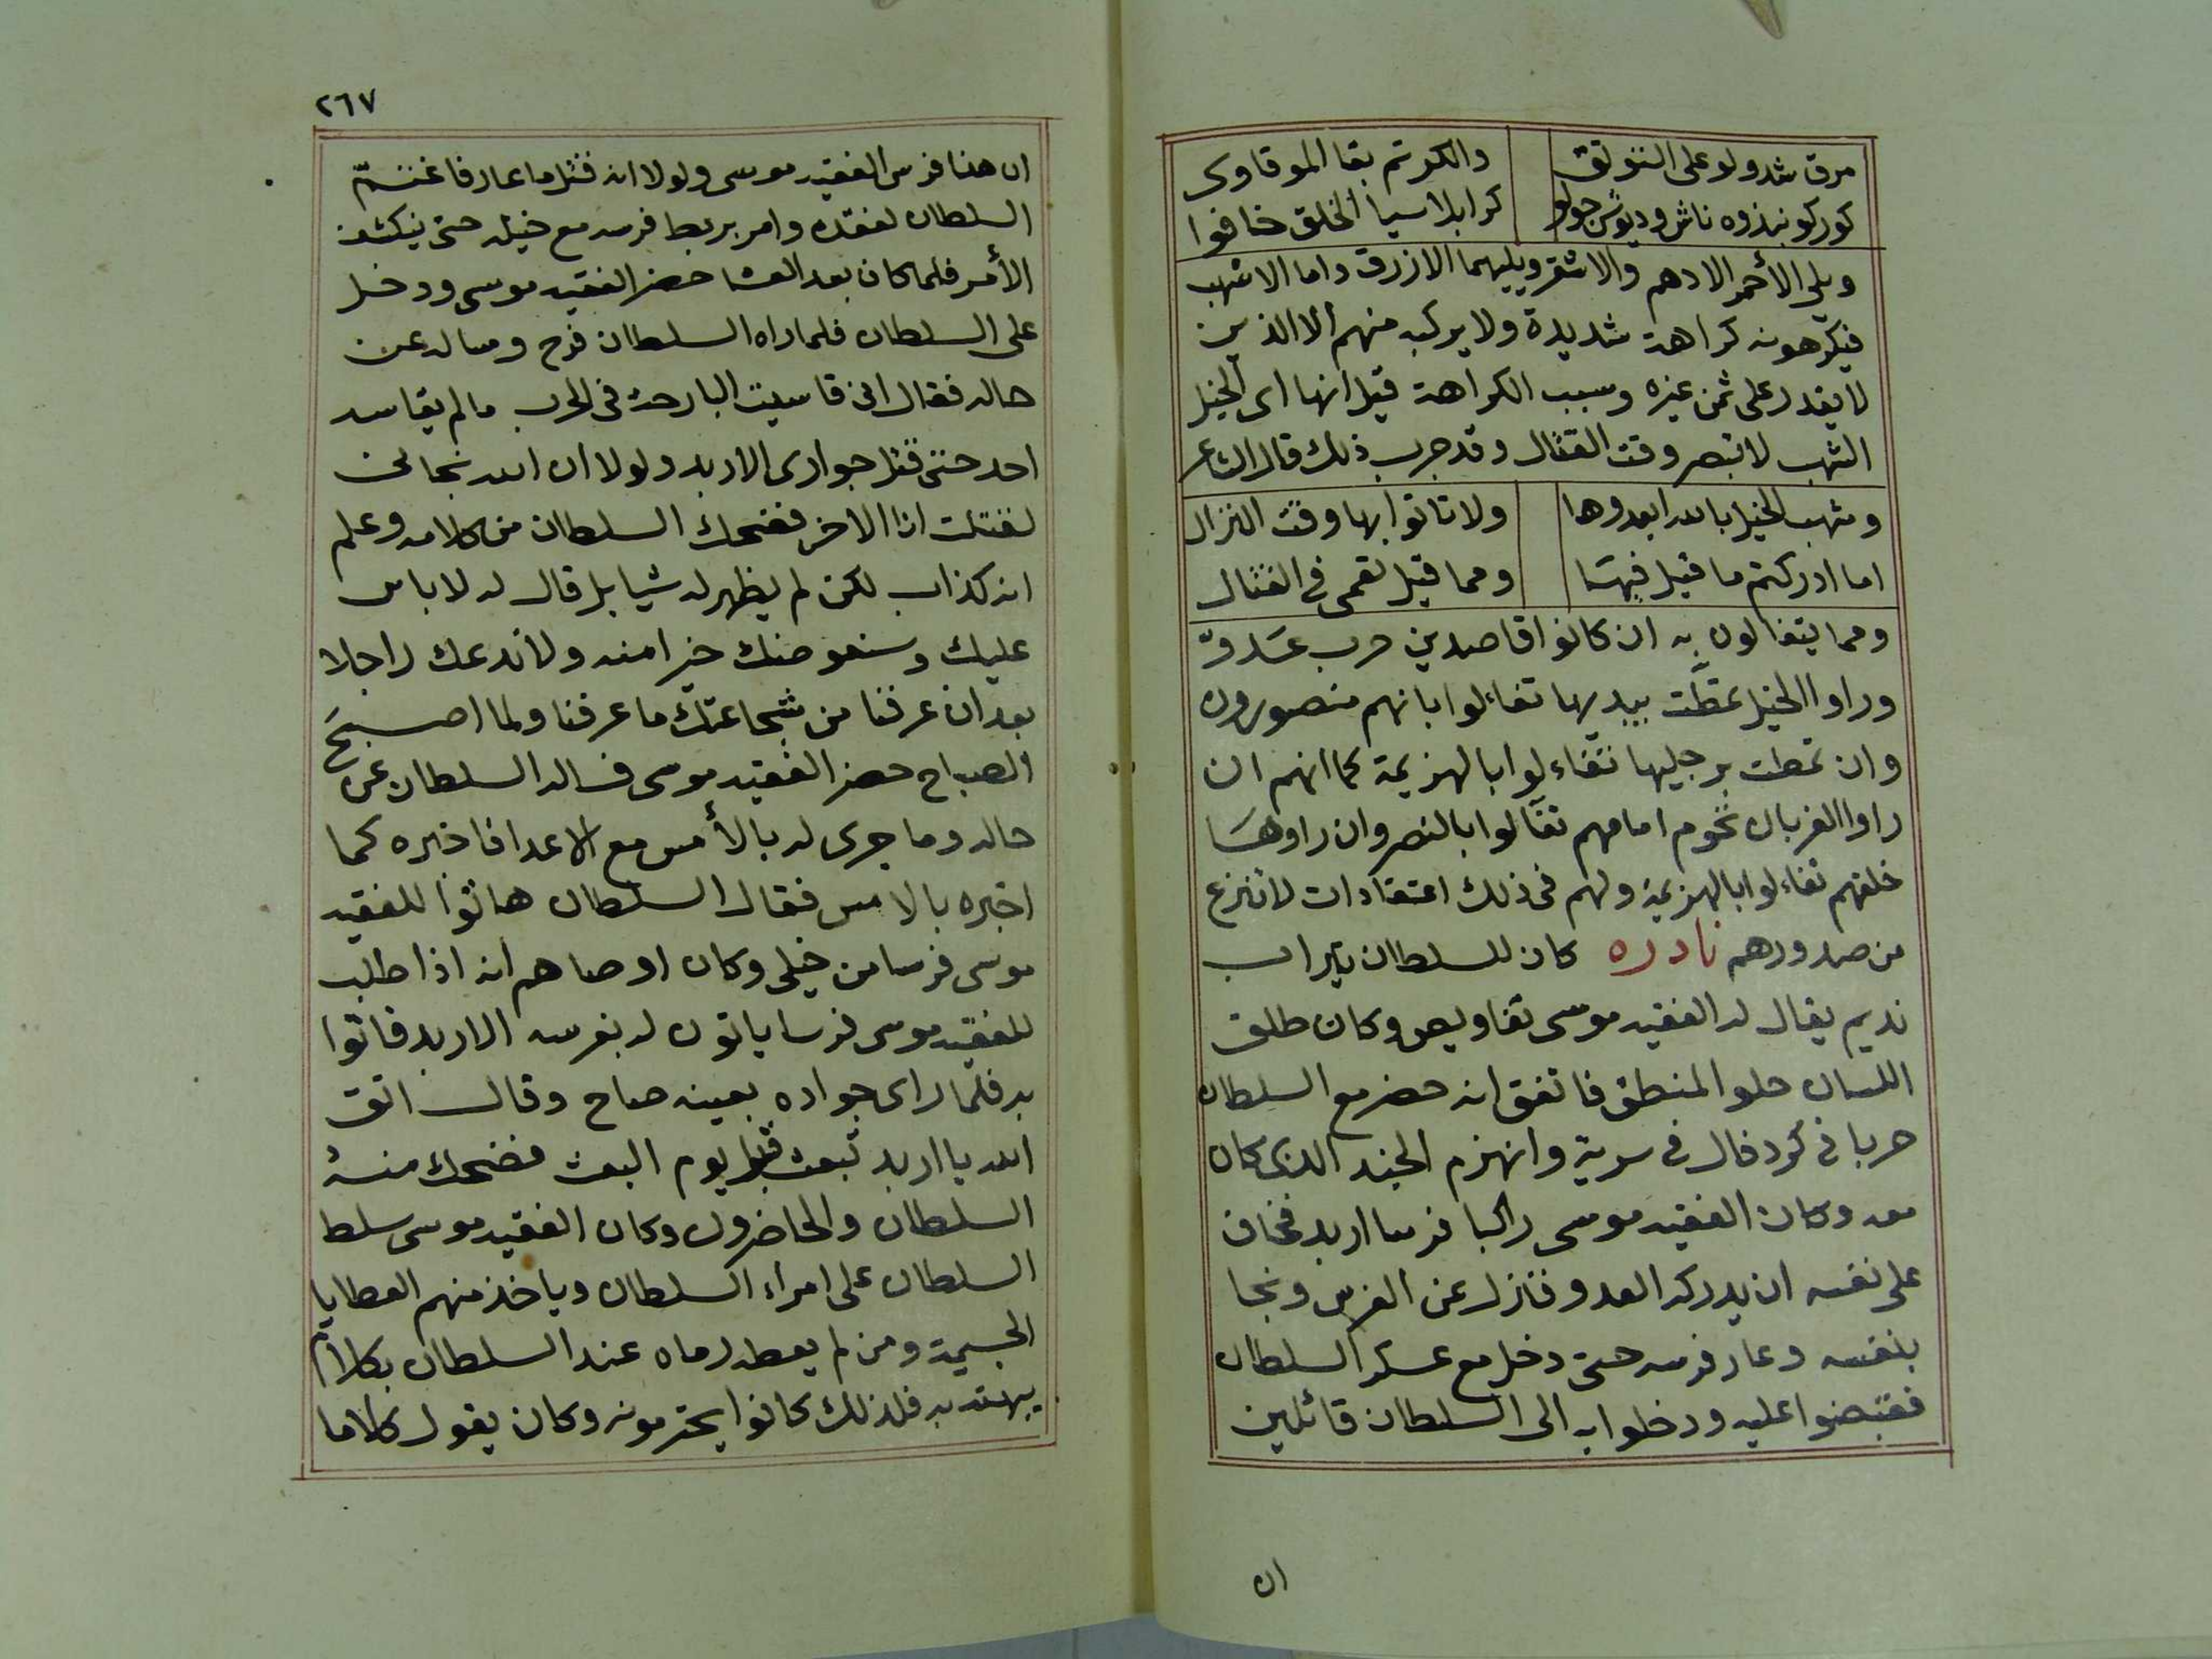 مرق شدولو على النتولق والكوتم بقا الموقاوى
كوركو نبذوه ناش وديوش جولو كرابلا سيا الخلق خافوا
ويلى الأحمر الادهم والاشقر ويليهما الازرق واما الاشهب
فيكرهونه كراهة شديدة ولا يركبه منهم الا الذى
لا يقدر على ثمن غيره وسبب الكراهة قيل انها اى الخيل
الشهب لا تبصر وقت القتال وقد جرب ذلك قال الشاعر
وشهب الخيل بالله ابعدوها ولا تاتوا بها وقت النزال
اما ادركتم ما قيل فيها ومما قيل تعمى فى القتال
ومما يتفالون به ان كانوا قاصدين حرب عدوّ
وراوا الخيل تمطّت بيديها تفاءلوا بانهم منصورون
وان تمطت برجليها تفاءلوا بالهزيمة كما انهم ان
راوا الغربان تحوم امامهم تفآلوا بالنصر وان راوها
خلفهم تفاءلوا بالهزيمة ولهم فى ذلك اعتقادات لا تنزع
من صدورهم نادره كان للسلطان تيراب
نديم يقال له الفقيه موسى تقاويص وكان طلق
اللسان حلو المنطق فاتفق انه حضر مع السلطان
حربا فى كردفال فى سرية وانهزم الجند الذى كان
معه وكان الفقيه موسى راكبا فرسا اربد فخاف
على نفسه ان يدركه العدو فنزل عن الفرس ونجا
بنفسه وعار فرسه حتى دخل مع عسكر السلطان
فقبضوا عليه ودخلوا به الى السلطان قائلين
ان
٢٦٧
ان هنا فرس الفقيه موسى ولولا انه قتل ما عار فاغتمّ
السلطان لفقده وامر بربط فرسه مع خيله حتى ينكشف
الأمر فلما كان بعد العشا حضر الفقيه موسى ودخل
على السلطان فلما راه السلطان فرح وساله عن
حاله فقال انى قاسيت البارحة فى الحرب ما لم يقاسه
احد حتى قتل جوادى الاربد ولولا ان الله نجانى
لقتلت انا الاخر فضحك السلطان من كلامه وعلم
انه كذاب لكن لم يظهر له شيا بل قال له لا باس
عليك وسنعوضك خيرا منه ولا ندعك راجلا
بعد ان عرفنا من شجاعتك ما عرفنا ولما اصبح
الصباح حضر الفقيه موسى فساله السلطان عن
حاله وما جرى له بالأمس مع الاعدا فاخبره كما
اخبره بالامس فقال السلطان هاتوا للفقيه
موسى فرسا من خيلى وكان اوصاهم انه اذا طلب
للفقيه موسى فرسا ياتون له بفرسه الاربد فاتوا
به فلما راى جواده بعينه صاح وقال اتق
الله يا اربد تبعث قبل يوم البعث فضحك منه
السلطان والحاضرون وكان الفقيه موسى سلط
السلطان على امراء السلطان وياخذ منهم العطايا
الجسيمة ومن لم يعطه رماه عند السلطان بكلام
يبهته به فلذلك كانوا يحترمونه وكان يقول كلاما